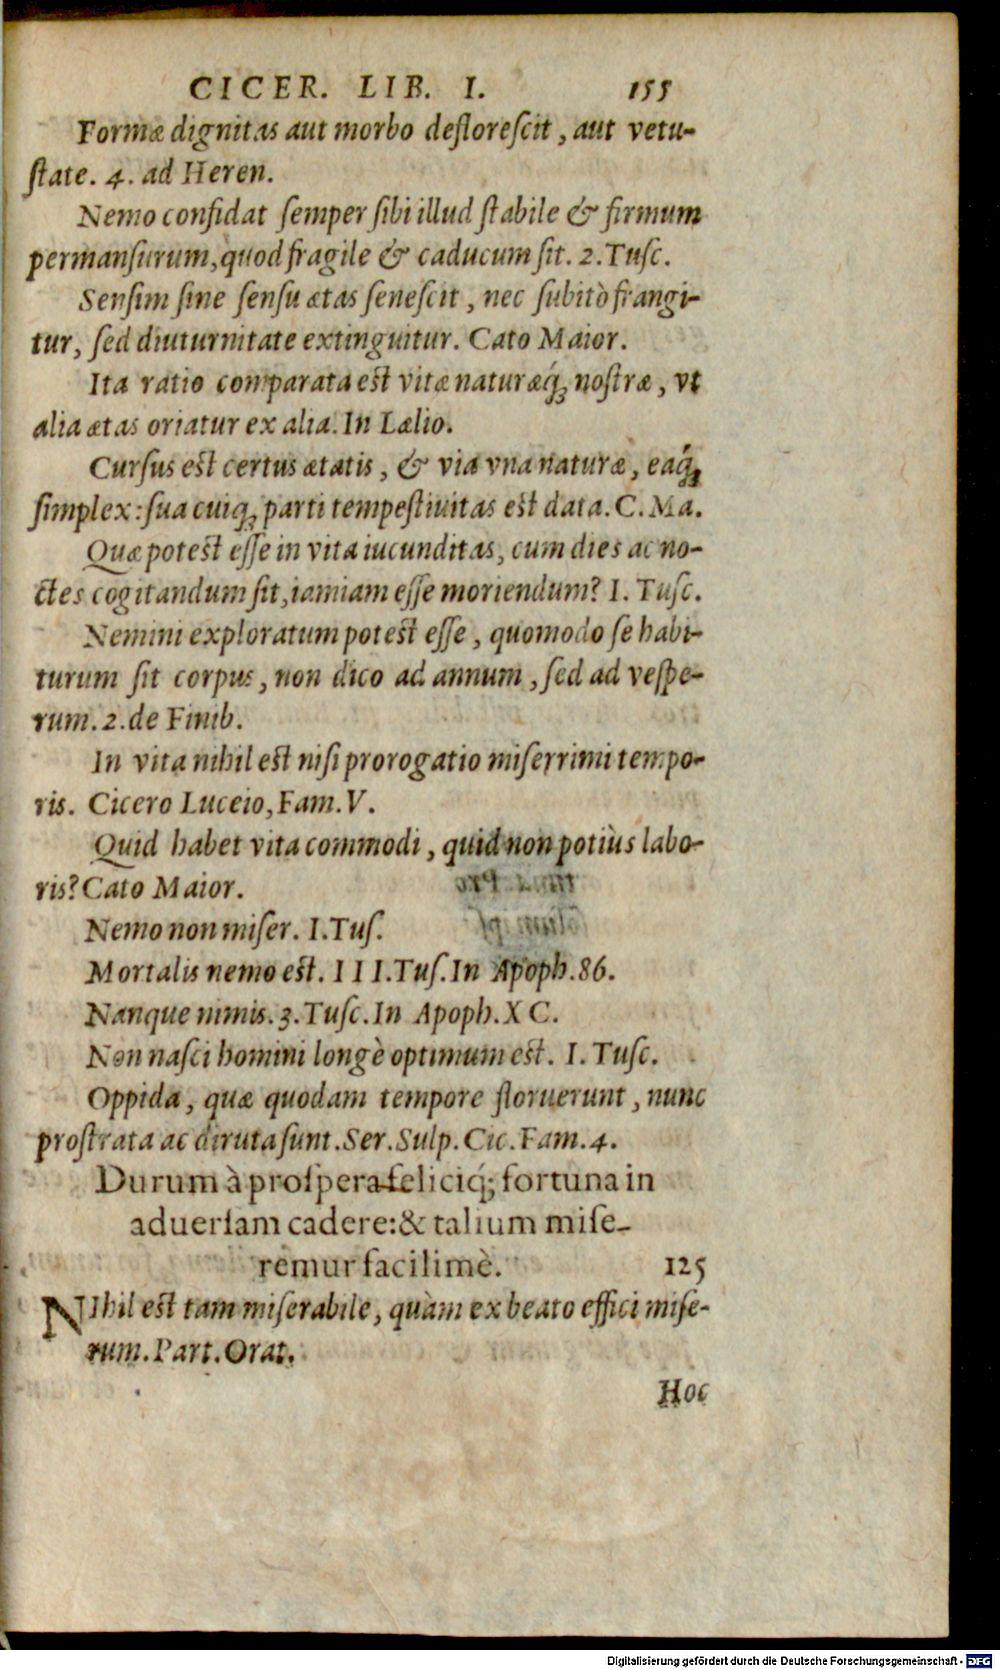 CICER. LIB. I. 155
Formæ dignitas aut morbo defloreſcit, aut vetu-
ſtate. 4. ad Heren.
Nemo confidat ſemper ſibi illud ſtabile & firmum
permanſurum, quod fragile & caducum ſit. 2. Tuſc.
Senſim ſine ſenſu ætas ſeneſcit, nec ſubitò frangi-
tur, ſed diuturnitate extinguitur. Cato Maior.
Ita ratio comparata est vitæ naturæq́; noſtræ, vt
alia ætas oriatur ex alia. In Lælio.
Curſus est certus ætatis, & via vna naturæ, eaq́;
ſimplex: ſua cuiq; parti tempeſtiuitas est data. C. Ma.
Quæ potest eſſe in vita iucunditas, cum dies ac no-
ctes cogitandum ſit, iamiam eſſe moriendum? I. Tuſc.
Nemini exploratum potest eſſe, quomodo ſe habi-
turum ſit corpus, non dico ad annum, ſed ad veſpe-
rum. 2. de Finib.
In vita nihil est niſi prorogatio miſerrimi tempo-
ris. Cicero Luceio, Fam. V.
Quid habet vita commodi, quid non potiùs labo-
ris? Cato Maior.
Nemo non miſer. I. Tuſ.
Mortalis nemo est. III. Tuſ. In Apoph. 86.
Nanque nimis. 3. Tuſc. In Apoph. XC.
Non naſci homini longè optimum est. I. Tuſc.
Oppida, quæ quodam tempore floruerunt, nunc
proſtrata ac diruta ſunt. Ser. Sulp. Cic. Fam. 4.
Durum à proſpera feliciq́; fortuna in
aduerſam cadere: & talium miſe-
remur facilimè. 125
NIhil est tam miſerabile, quàm ex beato effici miſe-
rum. Part. Orat.
Hoc
Digitalisierung gefördert durch die Deutsche Forschungsgemeinschaft - DFG